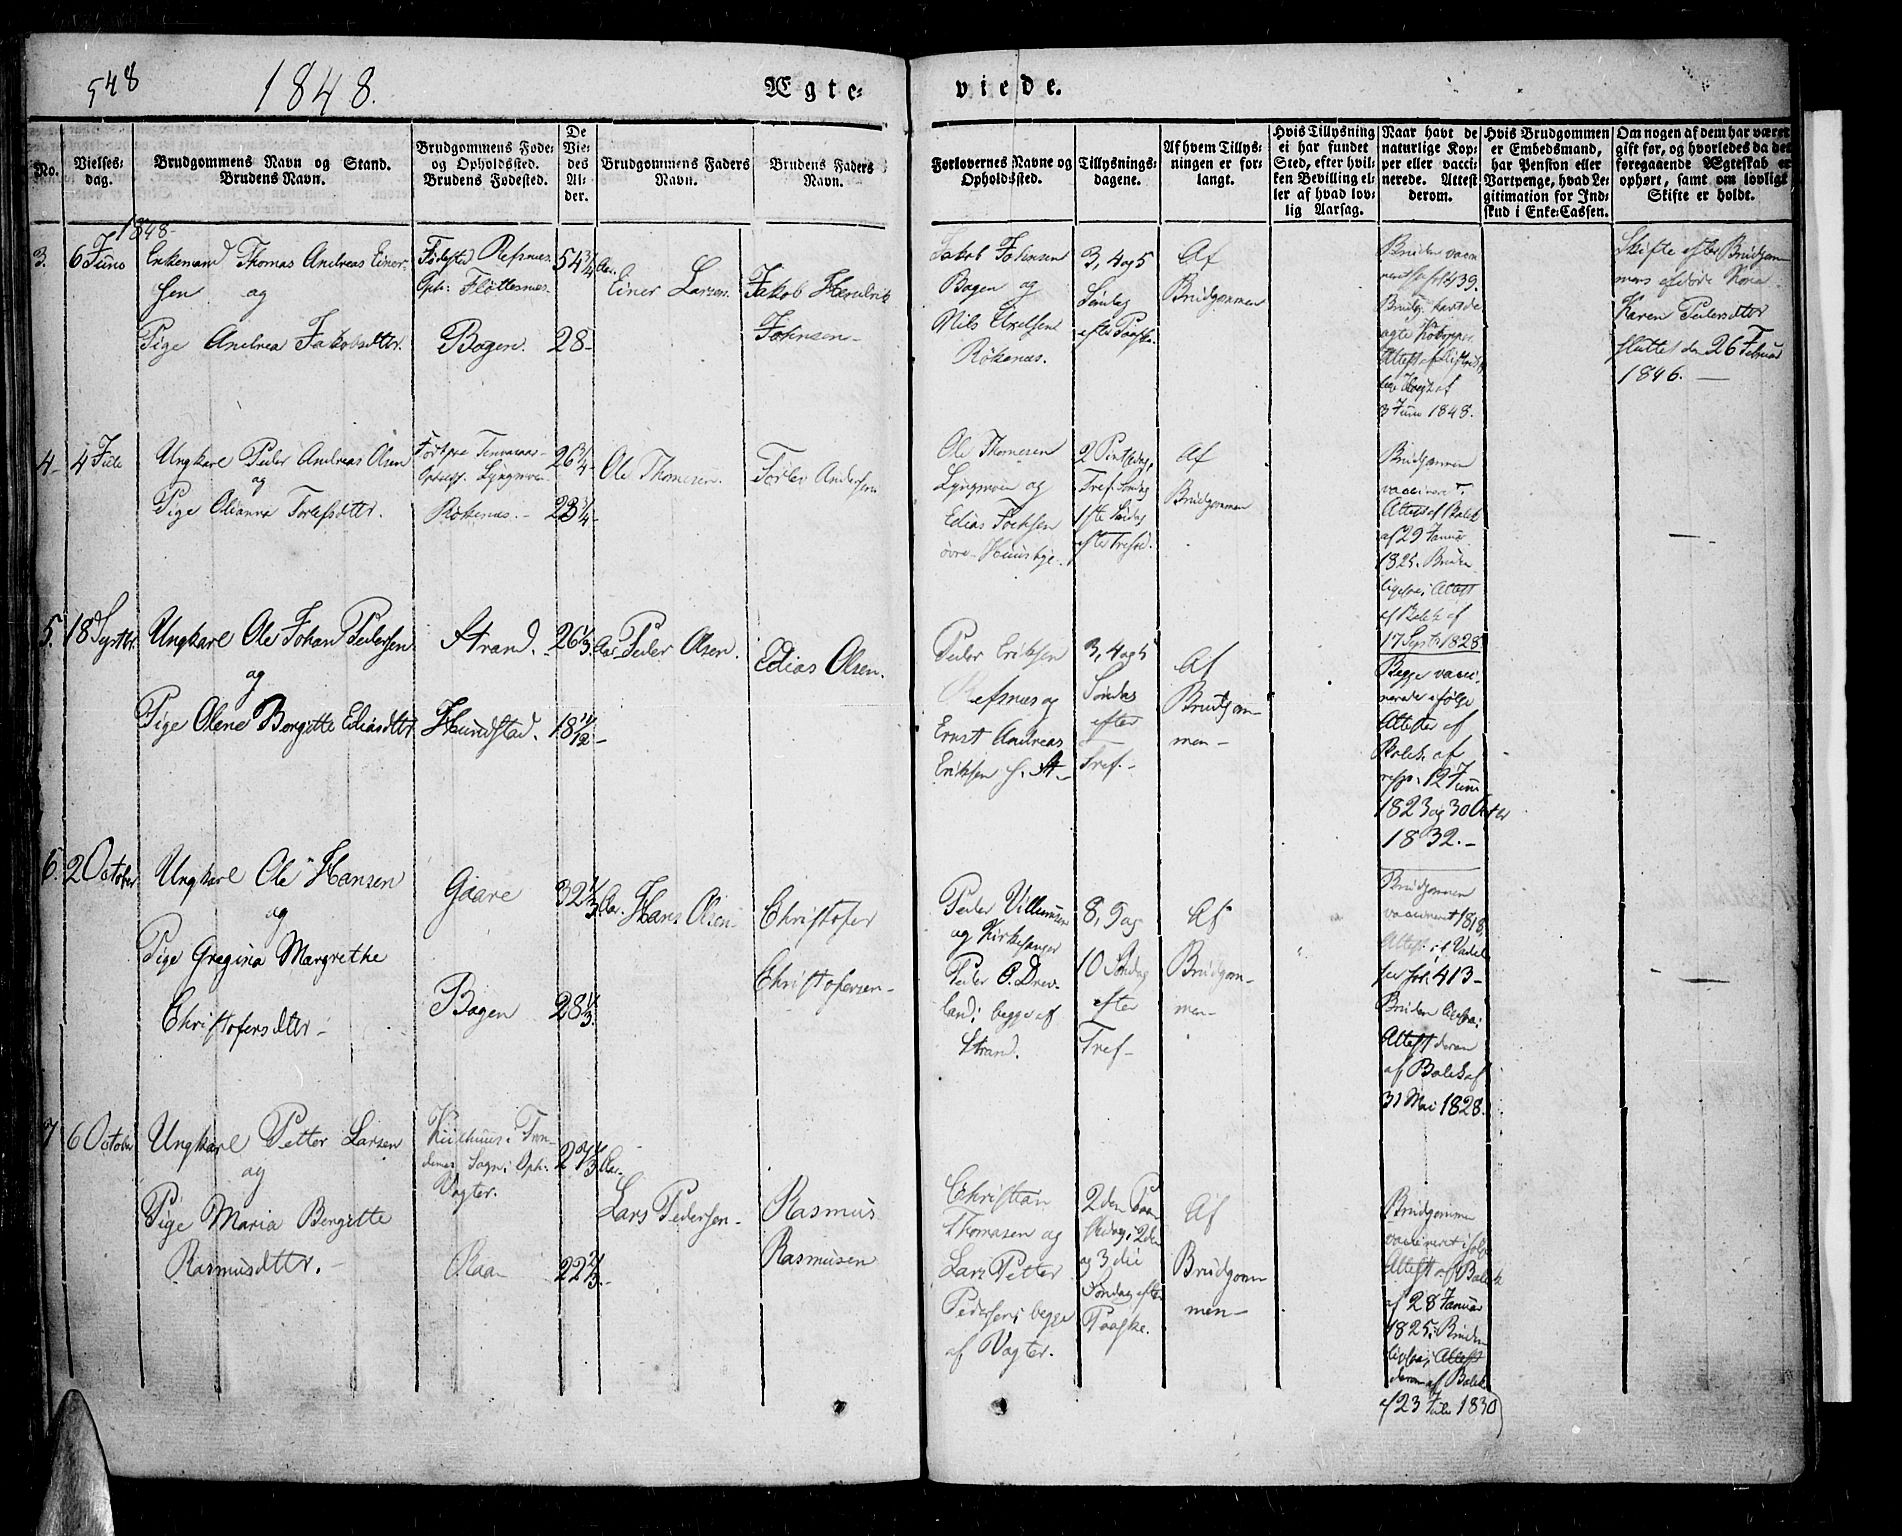 548
1848.
Ægte-
viede.
No.
Vielses-
dag.
Brudgommens Navn og Stand.
Brudens Navn.
Brudgommens Føde-
og Opholdssted.
Brudens Fødested.
De
Vie-
des
Al-
der.
Brudgommens Faders
Navn.
Brudens Faders
Navn.
Forlovernes Navne og
Opholdssted.
Tillysnings-
dagene.
Af hvem Tillys-
ningen er for-
langt.
Hvis Tillysning
ei har fundet
Sted, efter hvil-
ken Bevilling el-
ler af hvad lov-
lig Aarsag.
Naar havt de
naturlige Kop-
per eller vacci-
nerede. Attest
derom.
Hvis Brudgommen
er Embedsmand,
har Pension eller
Vartpenge, hvad Le-
gitimation for Ind-
skud i Enke-Cassen.
Om nogen af dem har været
gift før, og hvorledes da det
foregaaende Ægteskab er
ophørt, samt om lovligt
Skifte er holdt.
1848-
3.
6 Juno
Enkemand Thomas Andreas Einer-
sen og
Pige Andrea Jakobsdtter.
Fødested Refsnæs
Oph: Fløttesnæs
Bogen.
54 3/4 Aar.
28-
Einer Larsen.
Jakob Hendrik
Johnsen-
Jakob Johnsen
Bogen og
Nils Axelsen
Røkenæs.
3, 4 og 5
Søndag
efter Paaske.
Af
Brudgommen
Bruden vacci-
439.
Brudg. havt de
3 Juni 1848.
Skifte efter Brudgom-
mens afdøde Kone
Karen Pedersdtter
sluttet den 26 Februar
1846.-
4-
4 Jule
Ungkarl Peder Andreas Olsen
og
Pige Olianna Torlefsdtter.
Lyngmoen
Røkenæs.-
26 3/4-
23 1/4-
Ole Thomesen.
Torlev Andersen
Ole Thomesen
Lyngmoen og
Edias Torlefsen
øvre-
2 Pintsedag,
Tref. Søndag
1ste Søndag
efter Trefold.
Af
Brudgommen
Brudgommen
vaccineret.
Attest af Balck
af 29 Januar
1825. Bruden
ligesaa; Attest
af Balck af
17 Septbr 1828.
5.
18 Septbr.
Ungkarl Ole Johan Pedersen
og
Pige Olene Borgitte Ediasdtter
Strand.
Hundstad.
26 1/3 Aar
18 11/12-
Peder Olsen.
Edias Olsen.
Peder Eriksen
Refsnæs og
Ernst Andreas
Eriksen
3, 4 og 5
Søndag
efter
Tref.-
Af
Brudgom-
men-
Begge vacci-
nerede ifølge
Attester af
Balck af
resp: 12 Juni
1823 og 30 Octbr
1832.-
6.
2 October
Ungkarl Ole Hansen
og
Pige Gregina Margrethe
Christofersdtter-
Gaare
Bogen
32 1/3 Aar.
28 1/3.
Hans Olsen-
Christofer
Christofersen-
Peder Villumsen
og Kirkesanger
Peder O. Drev-
land; begge af
Strand.
8, 9 og
10 Søndag
efter
Tref-
Af
Brudgom-
men-
Brudgommen
vaccineret 1818,
Attest;
413-
Bruden ligesaa;
Attest derom
af Balck af
31 Mai 1828.
7
6 October
Ungkarl Petter Larsen
og
Pige Maria Bergitte
Rasmusdtter.-
Sogn; Oph:
Vogter.
Aar.
22 1/3-
Lars Pedersen-
Rasmus
Rasmusen
Christian
Thomasen og
Lars Petter
Pedersen; begge
af Vogter.
2den Paa-
skedag; 2den
og 3die
Søndag efter
Paaske.
Af
Brudgom-
men-
Brudgommen
vaccineret ifølge
Attest af Balck
af 28 Januar
1825; Bruden
ligesaa; Attest
derom af Balck
af 23 Jule 1830